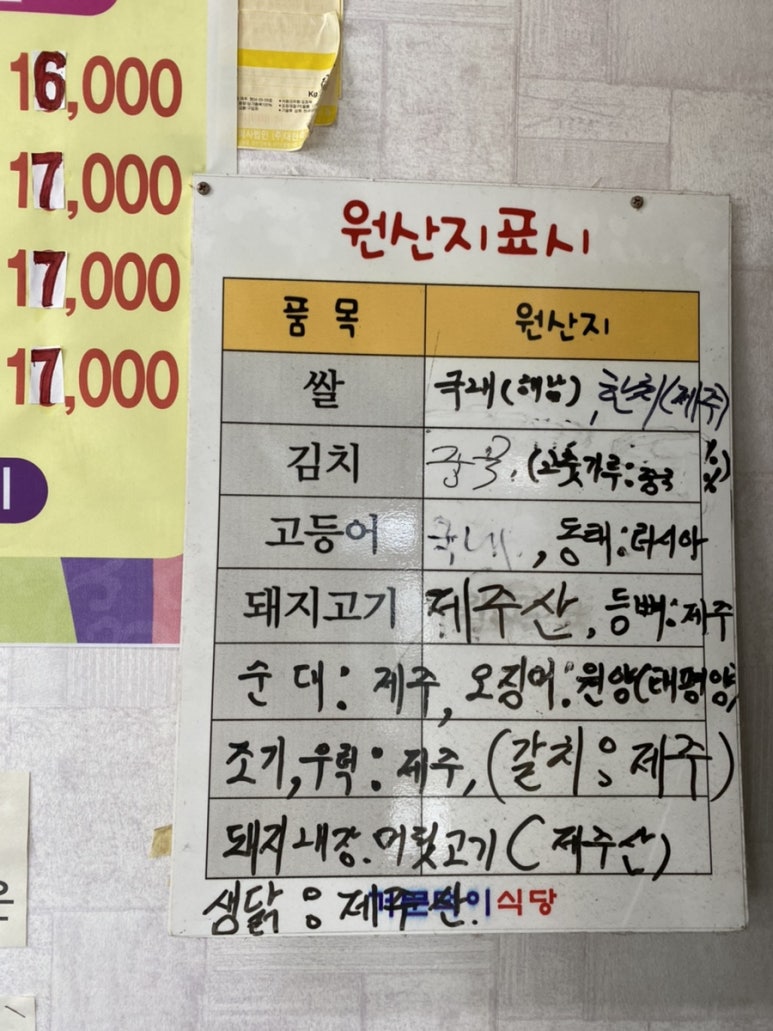 16,000
17,000
17,000
17,000
Kg
원산지표시
품 목 원산지
쌀 국내(해남), 한치(제주)
김치 중국, (고춧가루:중국 %%)
고등어 국내, 동태:러시아
돼지고기 제주산, 등뼈:제주
순 대: 제주, 오징어:원양(태평양)
조기,우럭: 제주, (갈치: 제주)
돼지내장.머릿고기(제주산)
생닭: 제주산.
식당